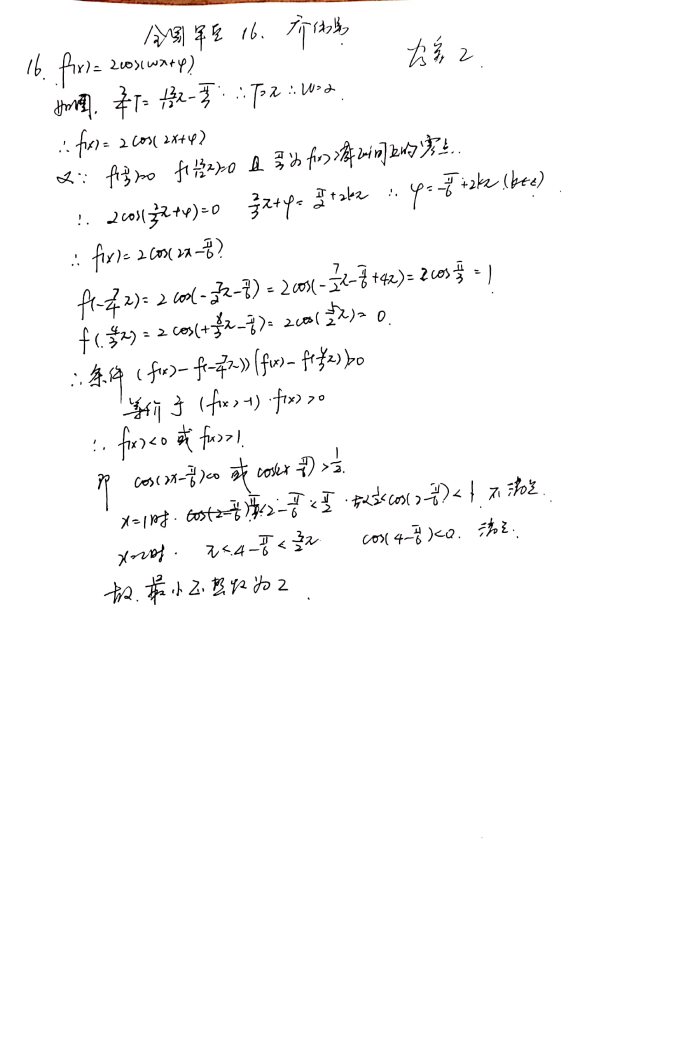 全国甲卷 16.
答案 2.
16. f(x)=2cos(ωx+φ)
如图. 3/4T=13/12π-π/3 ∴T=π ∴ω=2
∴f(x)=2cos(2x+φ)
又∵ f(π/3)=0 f(13/12π)=0 且 π/3为f(x)递减区间上的零点.
∴ 2cos(2/3π+φ)=0 2/3π+φ=π/2+2kπ ∴ φ=-π/6+2kπ(k∈z)
∴ f(x)=2cos(2x-π/6)
f(-7/4π)=2cos(-7/2π-π/6)=2cos(-7/2π-π/6+4π)=2cosπ/3=1
f(4/3π)=2cos(+8/3π-π/6)=2cos(5/2π)=0.
∴条件 (f(x)-f(-7/4π))(f(x)-f(4/3π))>0
等价于 (f(x)-1)·f(x)>0
∴ f(x)<0 或 f(x)>1
即 cos(2x-π/6)<0 或 cos(2x-π/6)>1/2.
x=1时. π/3<2-π/6<π/2 cos(2-π/6)<1 不满足.
x=2时. π<4-π/6<3/2π cos(4-π/6)<0. 满足.
故.最小正整数为2.